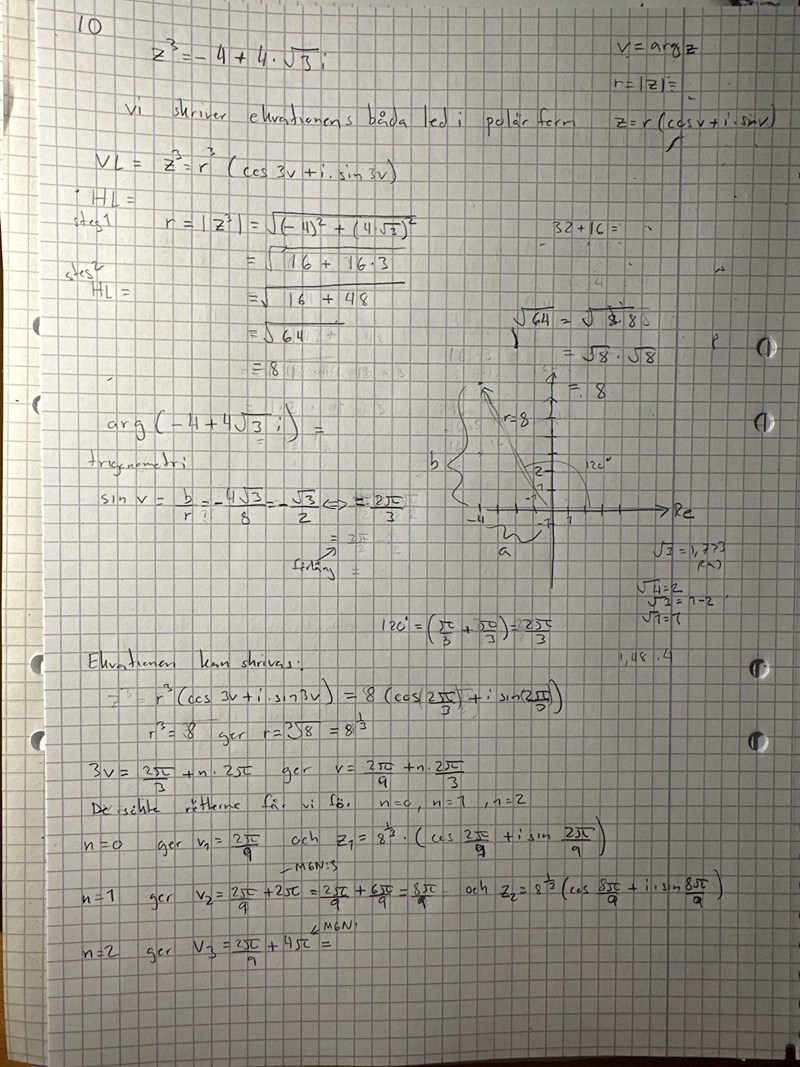 10
z³ = - 4 + 4 · √3 i
v = arg z
r = |z| =
Vi skriver ekvationens båda led i polär form z = r (cos v + i · sin v)
VL = z³ = r³ (cos 3v + i · sin 3v)
HL =
steg 1 r = |z³| = √((-4)² + (4·√3)²)
32 + 16 =
= √(16 + 16·3)
steg 2
HL =
= √(16 + 48)
= √64
= 8
√64 = √(8·8)
= √8 · √8
= 8
arg (-4 + 4√3 i) =
r = 8
120°
b
2
1
-1
Re
-4
-1
1
a
trigonometri
sin v = b/r = -4√3/8 = -√3/2 ⇔ = 2π/3
√3 = 1,773
√4 = 2
√3 = 1-2
√1 = 1
120° = (π/3 + π/3) = 2π/3
1,48 · 4
Ekvationen kan skrivas:
z³ = r³ (cos 3v + i · sin 3v) = 8 (cos(2π/3) + i sin(2π/3))
r³ = 8 ger r = ³√8 = 8^(1/3)
3v = 2π/3 + n · 2π ger v = 2π/9 + n · 2π/3
De rötterna får vi för n=0, n=1, n=2
n=0 ger v₁ = 2π/9 och z₁ = 8^(1/3) · (cos 2π/9 + i sin 2π/9)
MGN:3
n=1 ger v₂ = 2π/9 + 2π = 2π/9 + 6π/9 = 8π/9 och z₂ = 8^(1/3) (cos 8π/9 + i · sin 8π/9)
MGN:
n=2 ger v₃ = 2π/9 + 4π =